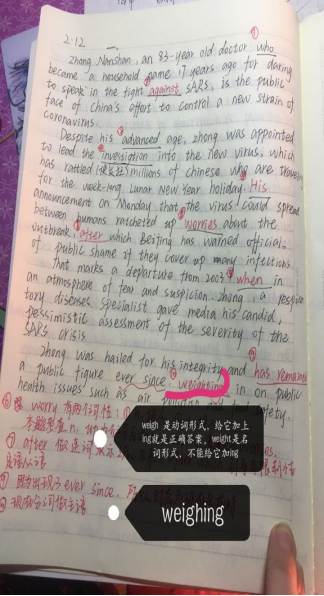 ①
2-12
Zhong Nanshan, an 83-year old doctor who
became a household name 17 years ago for daring
to speak in the fight against SARS, is the public
face of China's effort to control a new strain of
coronavirus.
Despite his advanced age, zhong was appointed
to lead the investigtion into the new virus, which
has rattled millions of Chinese who are
for the week-long Lunar New Year holiday. His
announcement on Monday that the virus could spread
between humans ratcheted up worries about the
outbreak after which Beijing has warned official
of public shame if they cover up many infections
That marks a departure from 2003 when in
an atmosphere of fear and suspicion zhong a respira
tory diseases specialist gave media his candid,
pessimistic assessment of the severity of the
SARS crisis
zhong was hailed for his integrity and has remained
a public figure ever since, weighting in on public
health issues such as air safety.
⑥ worry 有两个词性：
weigh 是动词形式，给它加上
ing就是正确答案，weight是名
词形式，不能给它加ing
⑦ after
定语从句
ever since
weighing
现在分词做主语